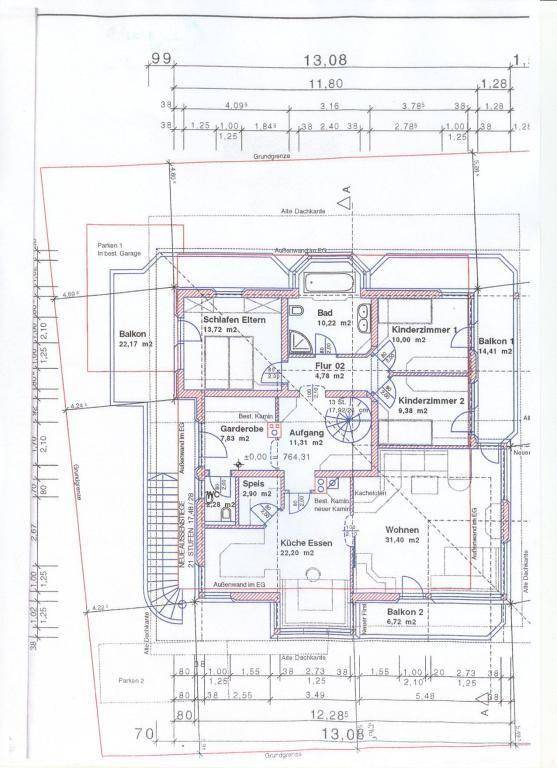 99 13,08 1,
11,80 1,28
38 4,09⁵ 3,16 3,78⁵ 38 1,28
38 1,25 1,00 1,84⁵ 38 2,40 38 2,78⁵ 1,00 38 1,28
1,25 1,25
Grundgrenze
A
Alte Dachkante
Parken 1
In best. Garage
Außenwand im EG
Balkon
22,17 m2
Schlafen Eltern
13,72 m2
Bad
10,22 m2
Kinderzimmer 1
10,00 m2
Balkon 1
14,41 m2
Flur 02
4,78 m2
Kinderzimmer 2
9,38 m2
13 St.
Best. Kamin
Garderobe
7,83 m2
Aufgang
11,31 m2
±0,00 764,31
Außenwand im EG
Speis
2,90 m2
WC
2,28 m2
Kachelofen
Best. Kamin
neuer Kamin
Wohnen
31,40 m2
Küche Essen
22,20 m2
NEUE AUSSENSTIEGE
21 STUFEN 17,48/28
Außenwand im EG
Außenwand im EG
Grundgrenze
Alte Dachkante
Neuer First
Balkon 2
6,72 m2
Alte Dachkante
Alte Dachkante
Parken 2
38
80 1,00 1,55 38 2,73 38 1,55 1,00 20 2,73 38
1,25 1,25 2,10 1,25
80 38 2,55 3,49 5,48
A
80 12,28⁵
70 13,08
Grundgrenze